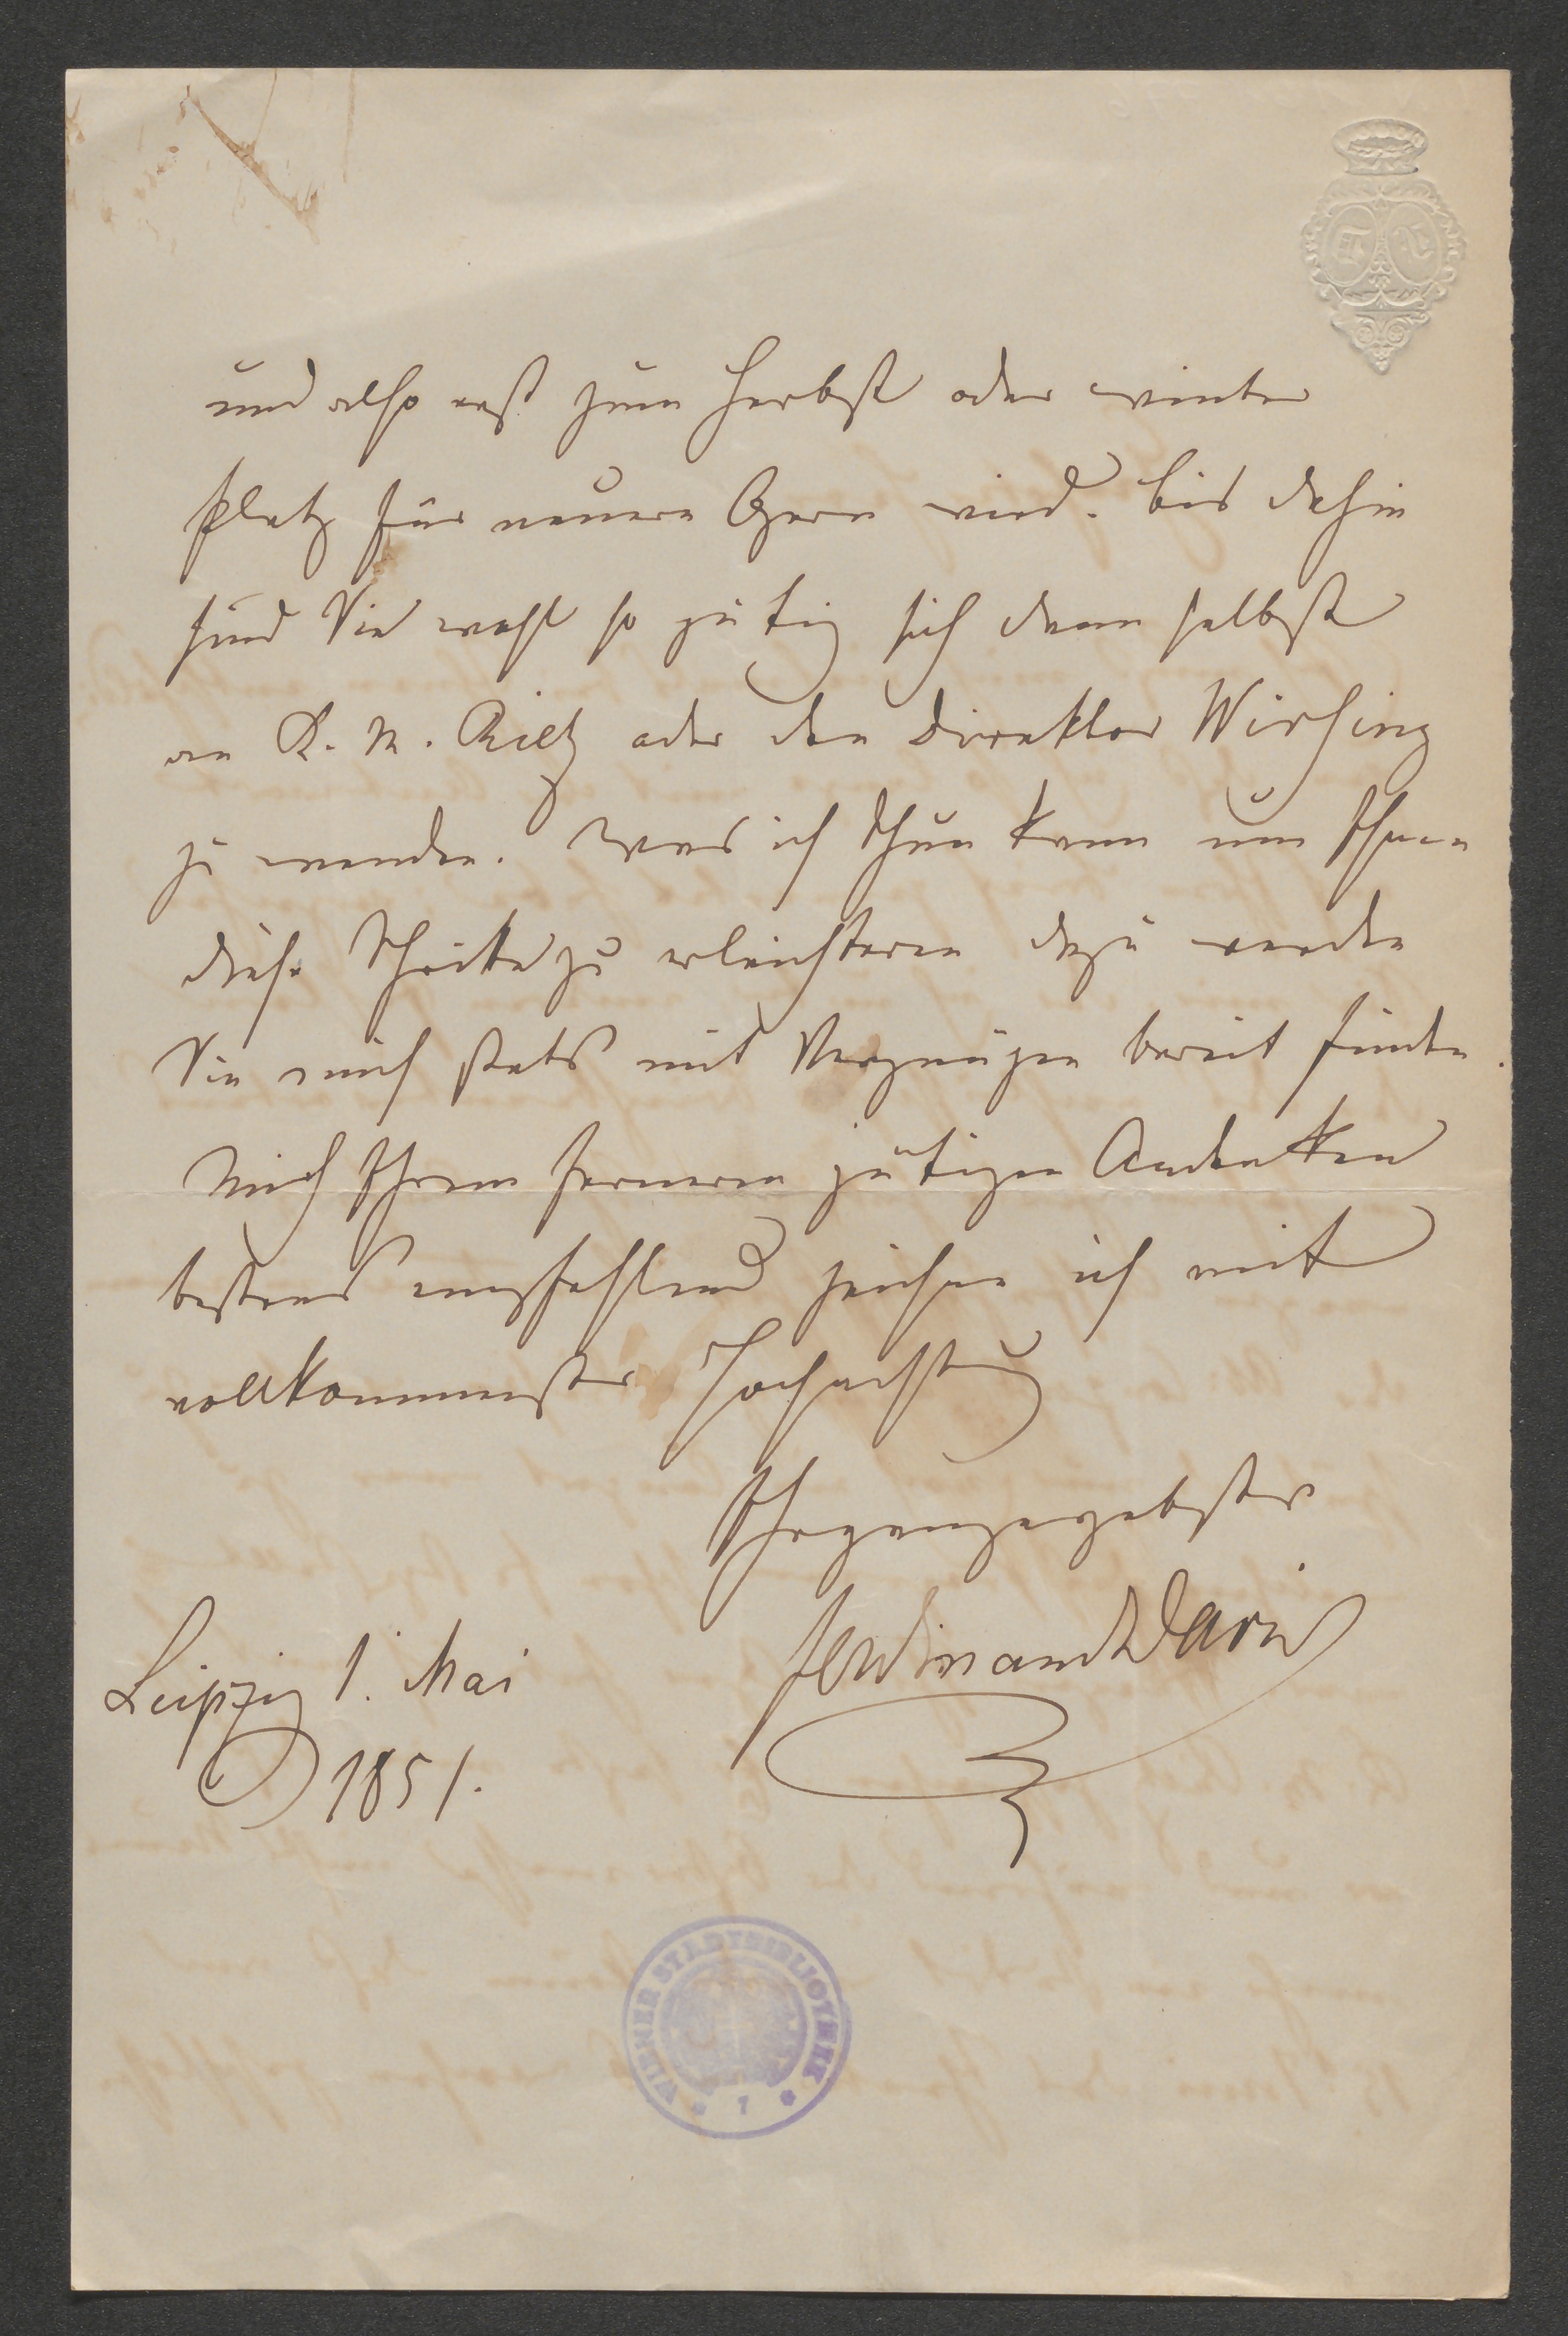 und also erst zum Herbst oder winter
Platz für neuere Opern wird. bis dahin
sind Sie wohl so gütig sich dann selbst
an K. M. Rietz oder den Direktor Wirsing
zu wenden. Was ich thun kann um Ihnen
diese Schritte zu erleichteren dazu werden
Sie mich stets mit Vergnügen bereit finden.
Mich Ihrem ferneren gütigen Andenken
bestens empfehlend zeichne ich mit
vollkommenster Hochachtung
Ihr ganz ergebenster
Ferdinand David
Leipzig 1. Mai
1851.
WIENER STADTBIBLIOTHEK